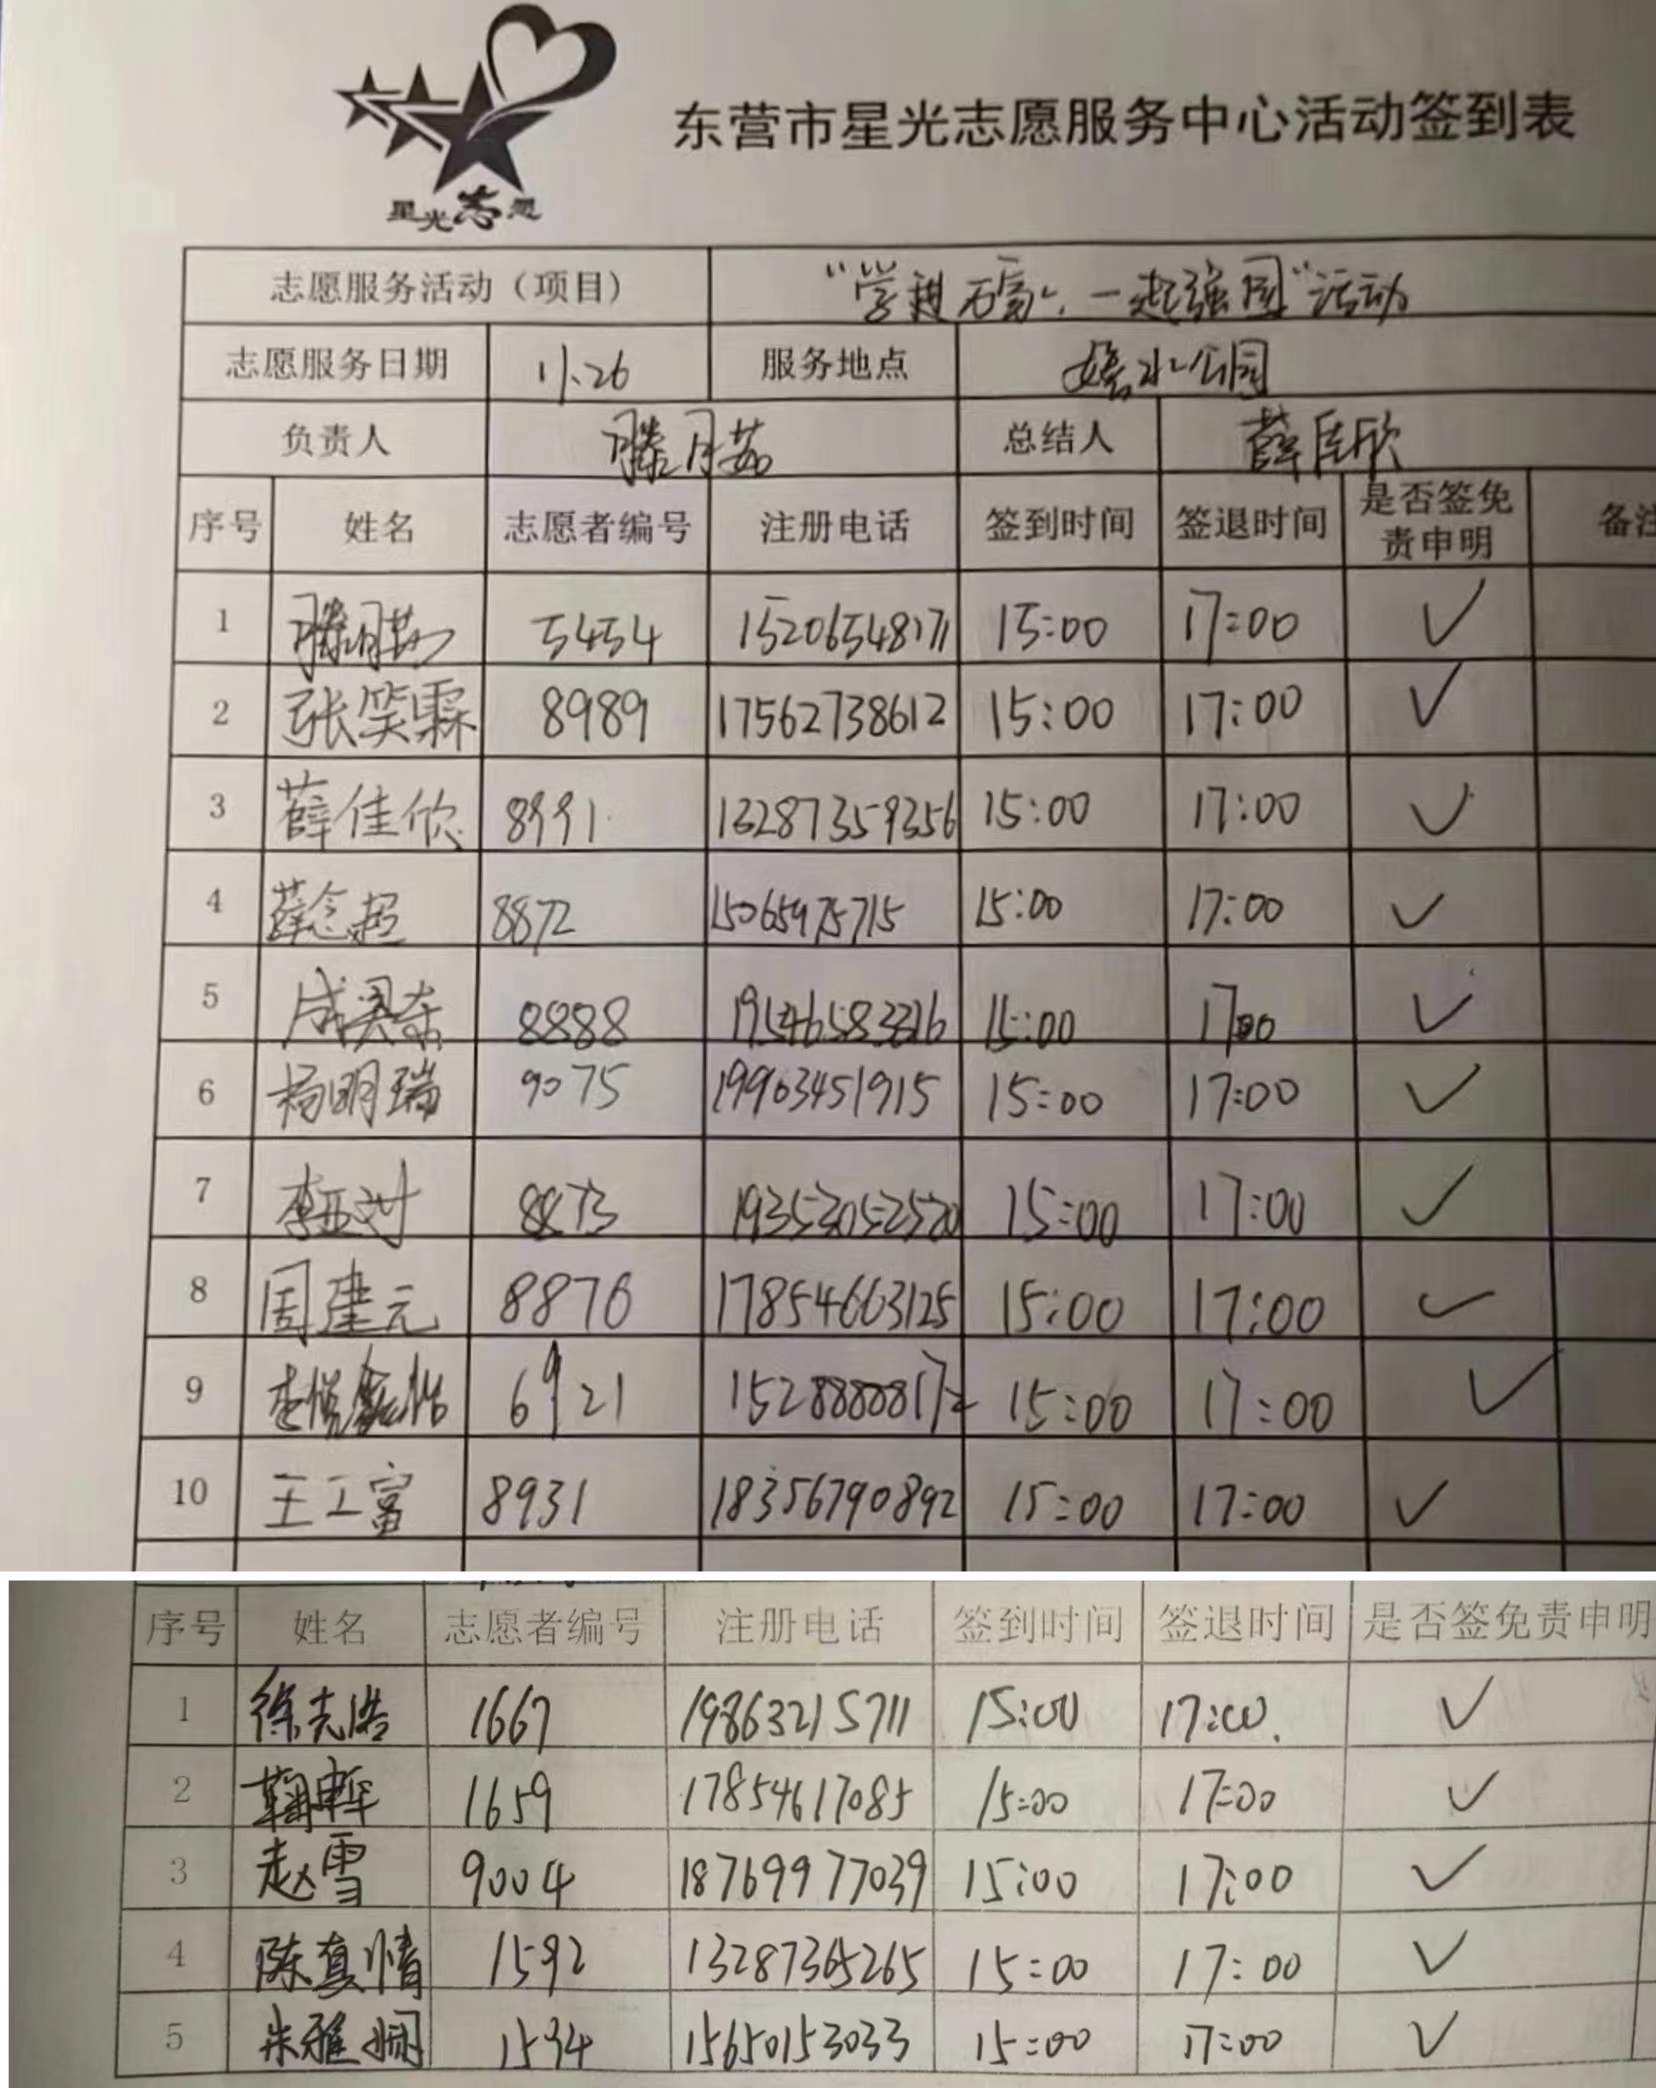 星光志愿
东营市星光志愿服务中心活动签到表
志愿服务活动（项目） “学赶石家、一起强国”活动
志愿服务日期 11.26 服务地点 公园
负责人 滕月茹 总结人 薛佳欣
序号 姓名 志愿者编号 注册电话 签到时间 签退时间 是否签免责申明 备注
1 滕月茹 5454 15206548171 15:00 17:00 ✓
2 张笑霖 8989 17562738612 15:00 17:00 ✓
3 薛佳欣 8991 13287359356 15:00 17:00 ✓
4 薛念超 8872 15065975715 15:00 17:00 ✓
5 8888 15:00 17:00 ✓
6 杨明瑞 9075 19963451915 15:00 17:00 ✓
7 8873 15:00 17:00 ✓
8 周建元 8876 17854663125 15:00 17:00 ✓
9 6921 15288888172 15:00 17:00 ✓
10 王工富 8931 18356790892 15:00 17:00 ✓
序号 姓名 志愿者编号 注册电话 签到时间 签退时间 是否签免责申明
1 徐志浩 1667 19863215711 15:00 17:00. ✓
2 1659 17854617085 15:00 17:00 ✓
3 赵雪 9004 18769977039 15:00 17:00 ✓
4 陈真情 1592 13287365265 15:00 17:00 ✓
5 朱雅娴 1594 15650153033 15:00 17:00 ✓